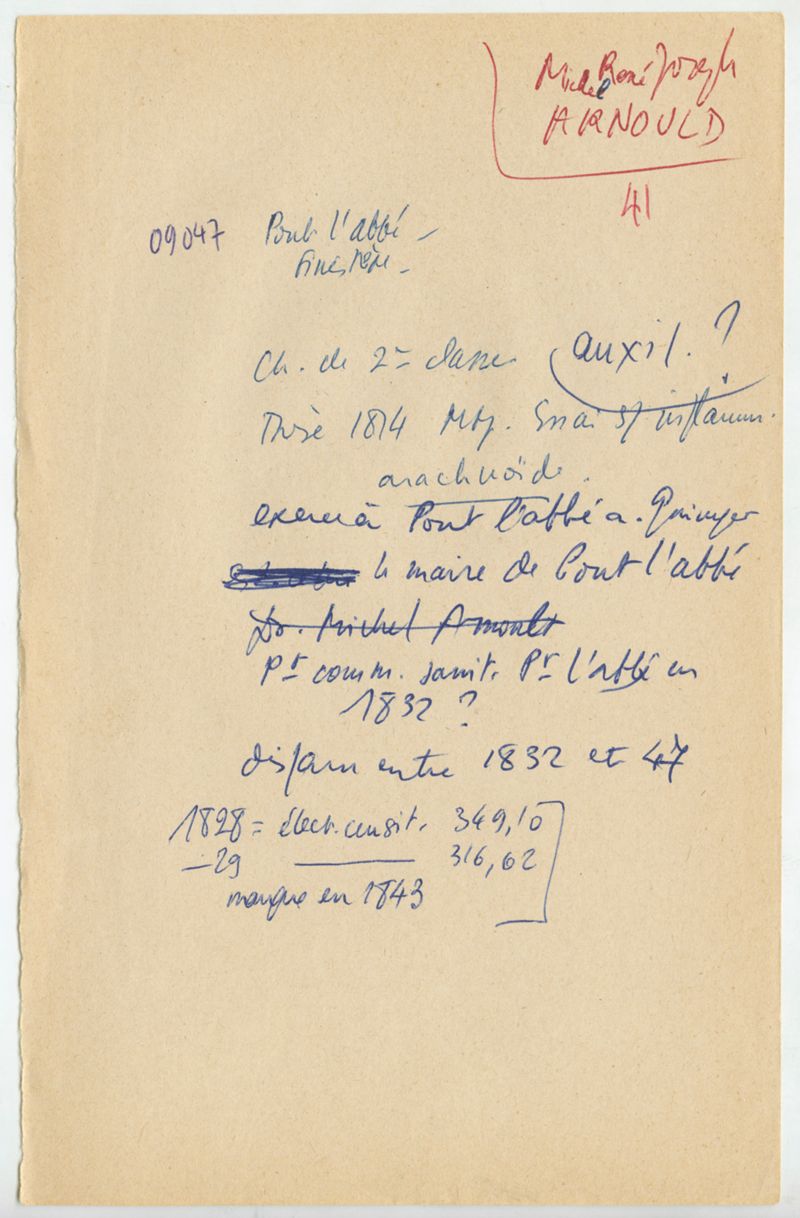 Michel René Joseph
ARNOULD
41
09047 Pont l'abbé -
Finistère -
Ch. de 2e classe auxil. ?
Thèse 1814 Essai s/ inflamm.
arachnoïde.
exerce à Pont l'abbé a. Quimper
le maire de Pont l'abbé
Dr. Michel Arnould
Pr comm. sanit. Pt l'abbé en
1832 ?
disparu entre 1832 et 47
1828 = élect. censit. 349,10
-29 316,62
manque en 1843